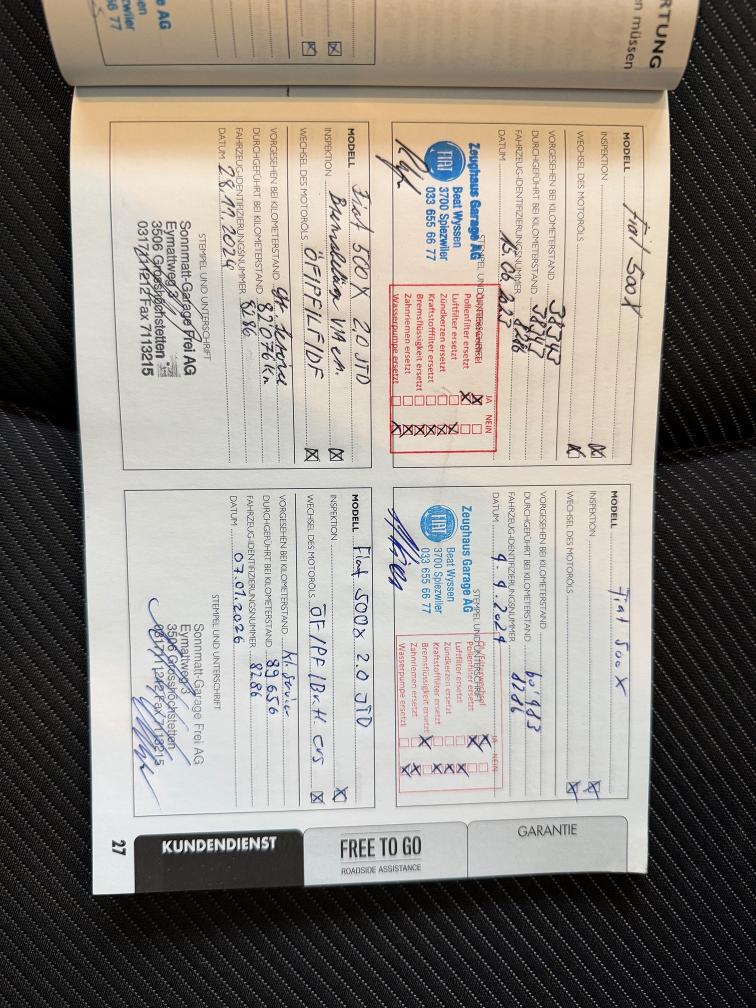 RTUNG
n müssen
e AG
en
zwiler
66 77
MODELL Fiat 500X
INSPEKTION
WECHSEL DES MOTORÖLS
VORGESEHEN BEI KILOMETERSTAND
DURCHGEFÜHRT BEI KILOMETERSTAND
FAHRZEUG-IDENTIFIZIERUNGSNUMMER
DATUM
STEMPEL UND UNTERSCHRIFT
Zeughaus Garage AG
Beat Wyssen
3700 Spiezwiler
033 655 66 77
FIAT
JA NEIN
Pollenfilter ersetzt
Luftfilter ersetzt
Zündkerzen ersetzt
Kraftstofffilter ersetzt
Bremsflüssigkeit ersetzt
Zahnriemen ersetzt
Wasserpumpe ersetzt
MODELL Fiat 500X
INSPEKTION
WECHSEL DES MOTORÖLS
VORGESEHEN BEI KILOMETERSTAND
DURCHGEFÜHRT BEI KILOMETERSTAND
FAHRZEUG-IDENTIFIZIERUNGSNUMMER 8286
DATUM 9.9.2024
STEMPEL UND UNTERSCHRIFT
Zeughaus Garage AG
Beat Wyssen
3700 Spiezwiler
033 655 66 77
FIAT
JA NEIN
Pollenfilter ersetzt
Luftfilter ersetzt
Zündkerzen ersetzt
Kraftstofffilter ersetzt
Bremsflüssigkeit ersetzt
Zahnriemen ersetzt
Wasserpumpe ersetzt
MODELL Fiat 500X 2.0 JTD
INSPEKTION
WECHSEL DES MOTORÖLS ÖF/PF/LF/DF
VORGESEHEN BEI KILOMETERSTAND
DURCHGEFÜHRT BEI KILOMETERSTAND 87076 Km
FAHRZEUG-IDENTIFIZIERUNGSNUMMER 8286
DATUM 28.11.2024
STEMPEL UND UNTERSCHRIFT
Sonnmatt-Garage Frei AG
Eymattweg 3
3506 Grosshöchstetten
0317111212 Fax 7113215
MODELL Fiat 500X 2.0 JTD
INSPEKTION
WECHSEL DES MOTORÖLS
VORGESEHEN BEI KILOMETERSTAND
DURCHGEFÜHRT BEI KILOMETERSTAND 89650
FAHRZEUG-IDENTIFIZIERUNGSNUMMER 8286
DATUM 07.01.2026
STEMPEL UND UNTERSCHRIFT
Sonnmatt-Garage Frei AG
Eymattweg 3
3506 Grosshöchstetten
0317111212 Fax 7113215
GARANTIE
FREE TO GO
ROADSIDE ASSISTANCE
KUNDENDIENST
27